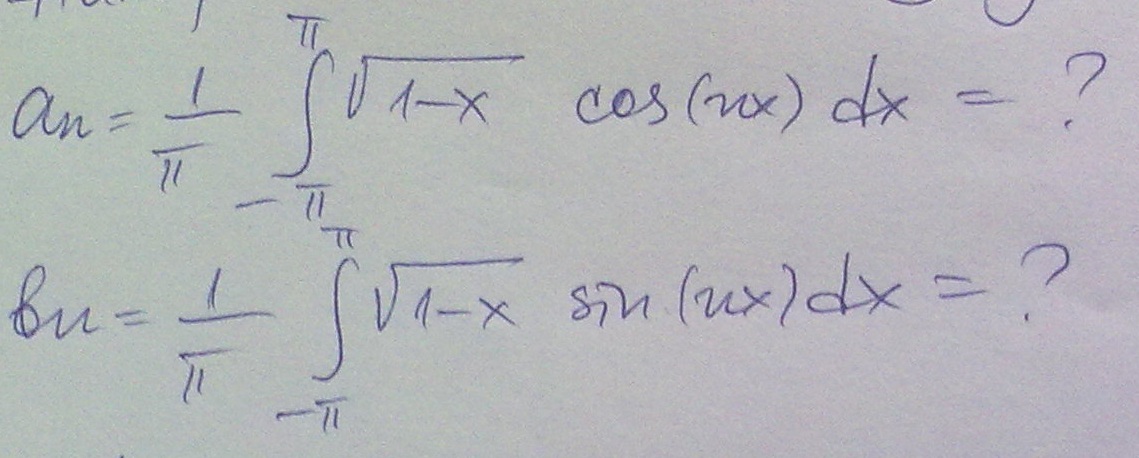 an = 1/π ∫_{-π}^{π} √(1-x) cos(nx) dx = ?
bn = 1/π ∫_{-π}^{π} √(1-x) sin(nx) dx = ?